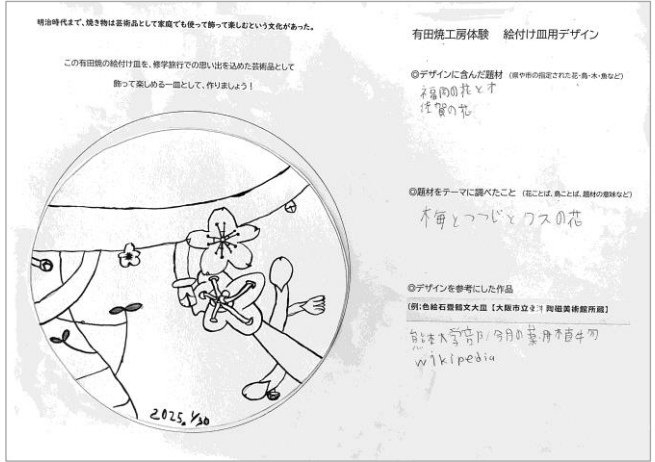 明治時代まで、焼き物は芸術品として家庭でも使って飾って楽しむという文化があった。
この有田焼の絵付け皿を、修学旅行での思い出を込めた芸術品として
飾って楽しめる一皿として、作りましょう！
2025. 1/30
有田焼工房体験 絵付け皿用デザイン
◎デザインに含んだ題材 (県や市の指定された花・鳥・木・魚など)
福岡の花と木
佐賀の花
◎題材をテーマに調べたこと (花ことば、鳥ことば、題材の意味など)
梅とつつじとクスの花
◎デザインを参考にした作品
(例:色絵石畳鶴文大皿【大阪市立 陶磁美術館所蔵】
熊本大学薬学部/今月の薬用植物
wikipedia